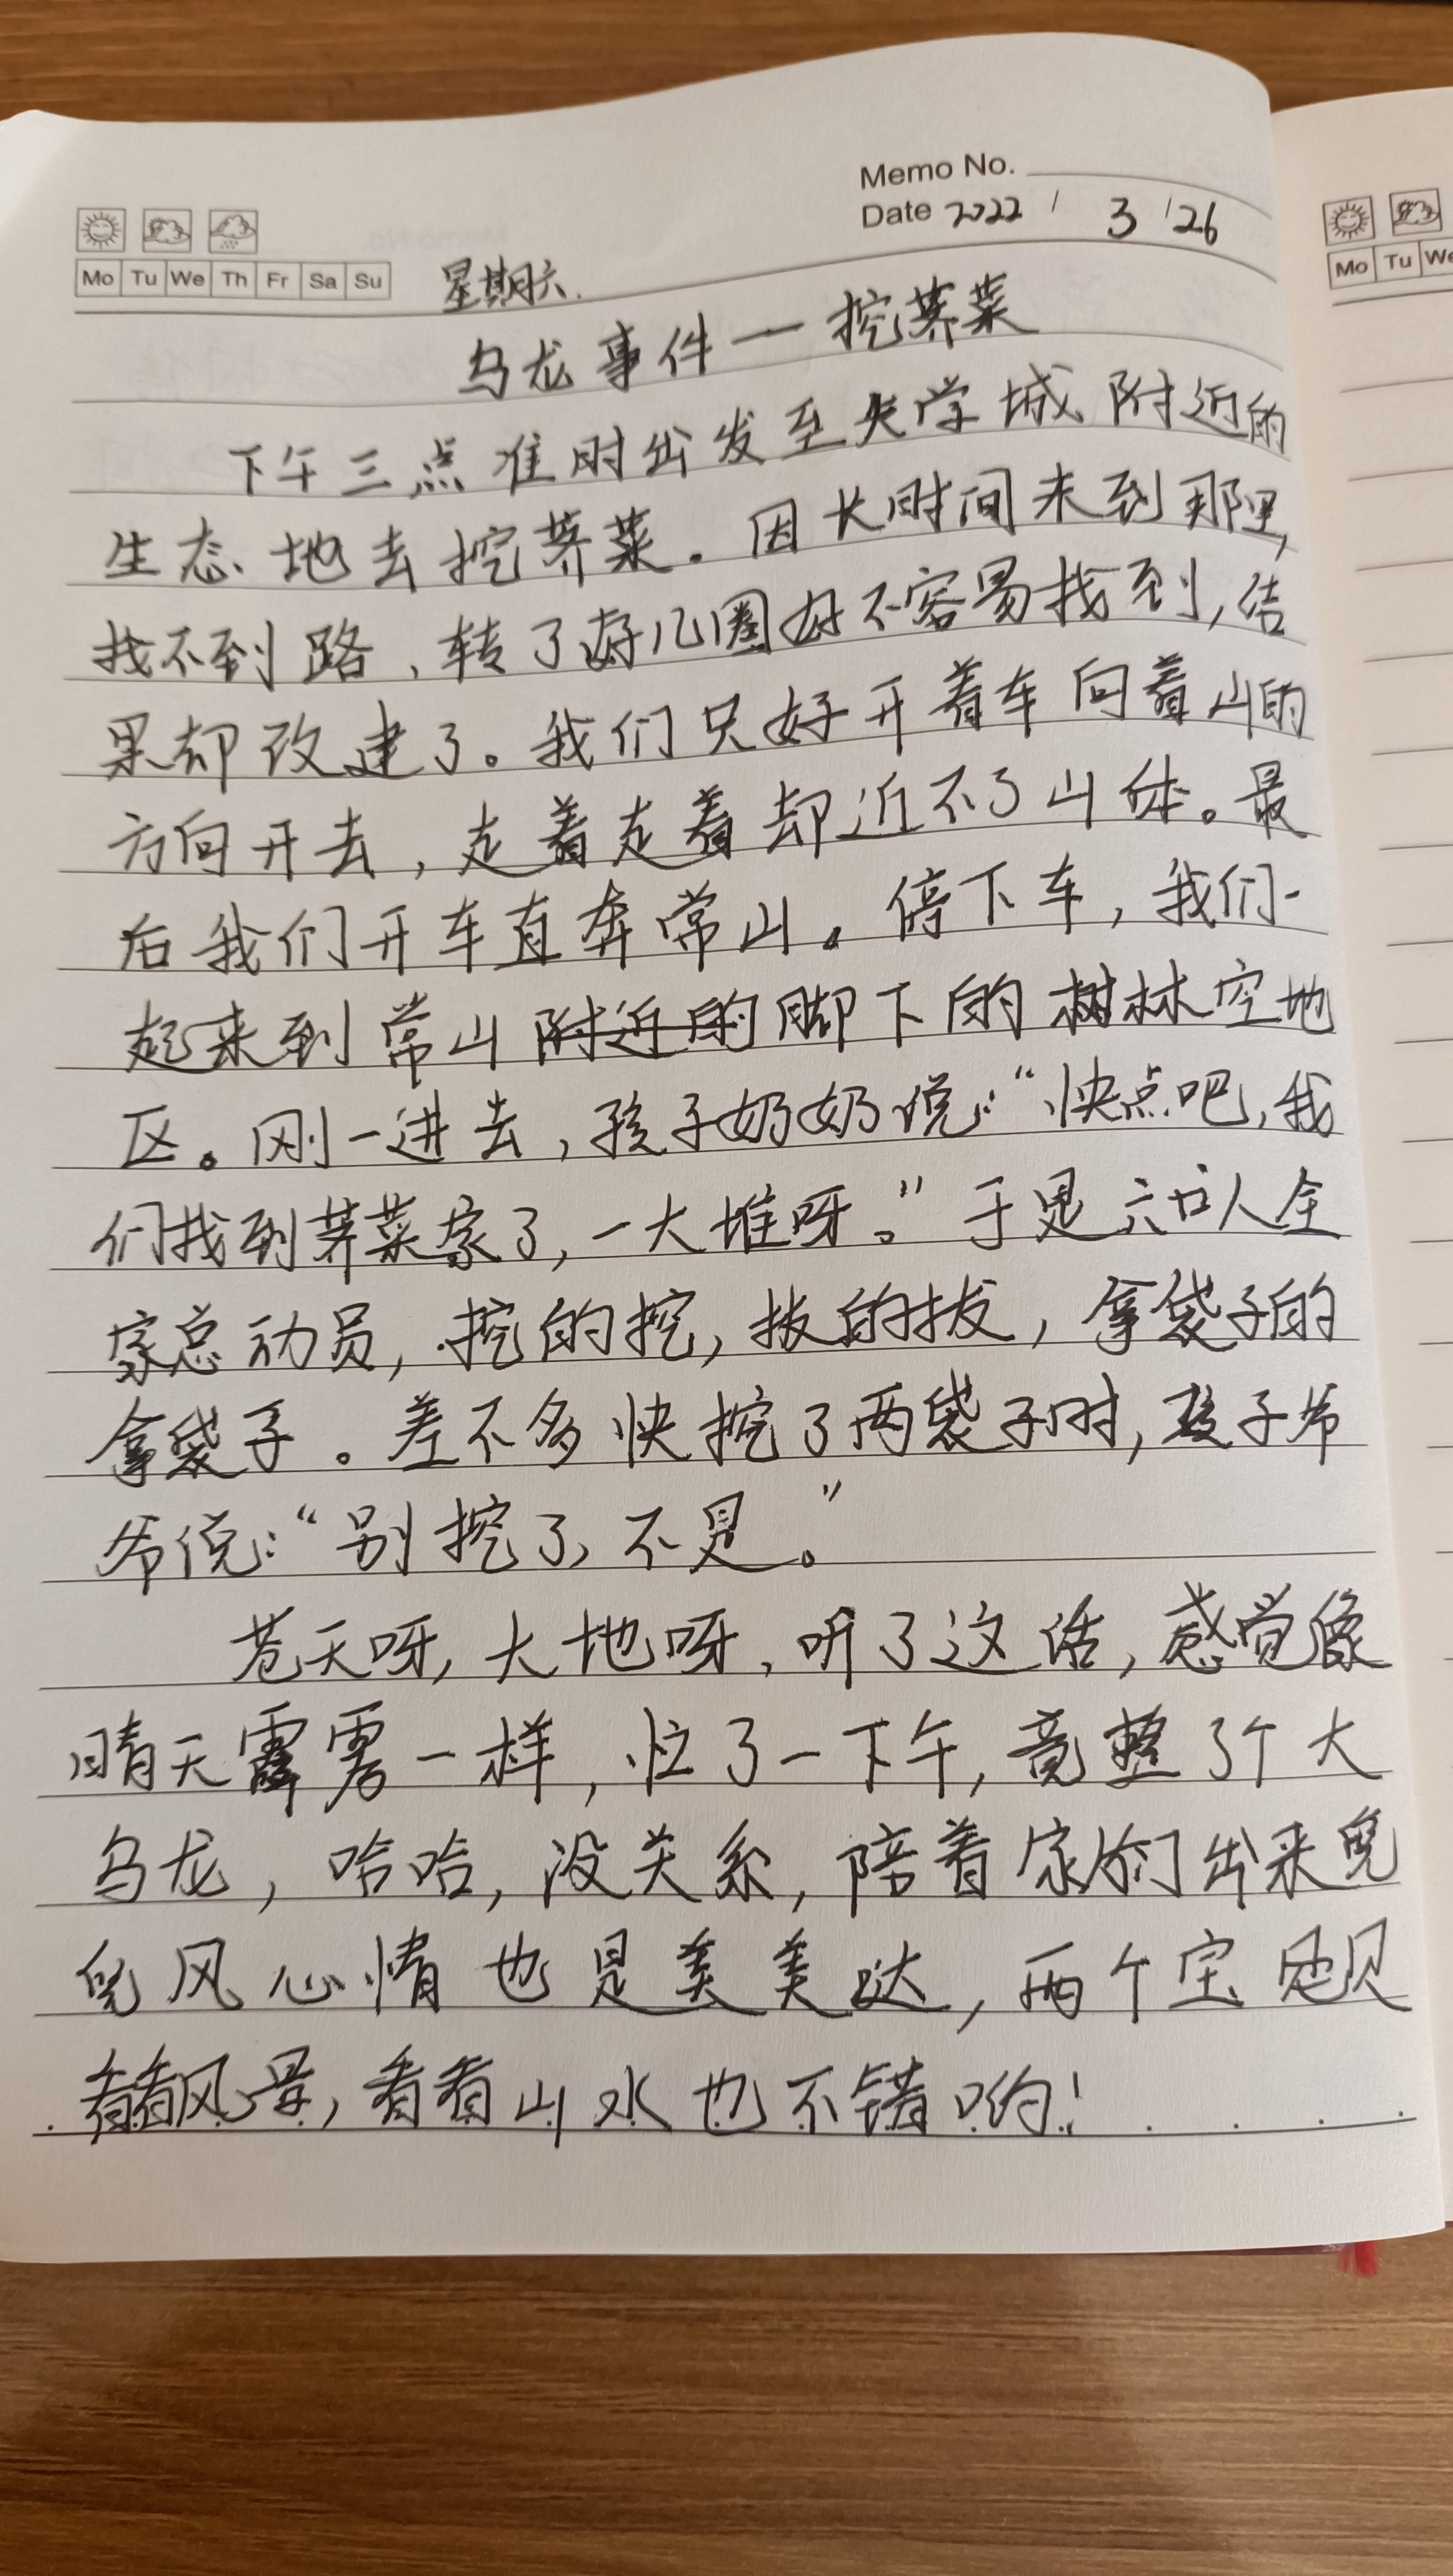 Memo No.
Date 2022 / 3 / 26
Mo Tu We Th Fr Sa Su
星期六.
Mo Tu We
乌龙事件一挖荠菜
下午三点准时出发至大学城附近的
生态地去挖荠菜。因长时间未到那里,
找不到路,转了好几圈好不容易找到,结
果却改建了。我们只好开着车向着山的
方向开去,走着走着却近不了山体。最
后我们开车直奔常山。停下车,我们一
起来到常山附近的脚下的树林空地
区。刚一进去,孩子奶奶说:“快点吧,我
们找到荠菜家了,一大堆呀。”于是六口人全
家总动员,挖的挖,拔的拔,拿袋子的
拿袋子。差不多快挖了两袋子时,孩子爷
爷说:“别挖了,不是。”
苍天呀,大地呀,听了这话,感觉像
晴天霹雳一样,忙了一下午,竟整了个大
乌龙,哈哈,没关系,陪着家人们出来兜
兜风心情也是美美哒,两个宝贝
看看风景,看看山水也不错哟!